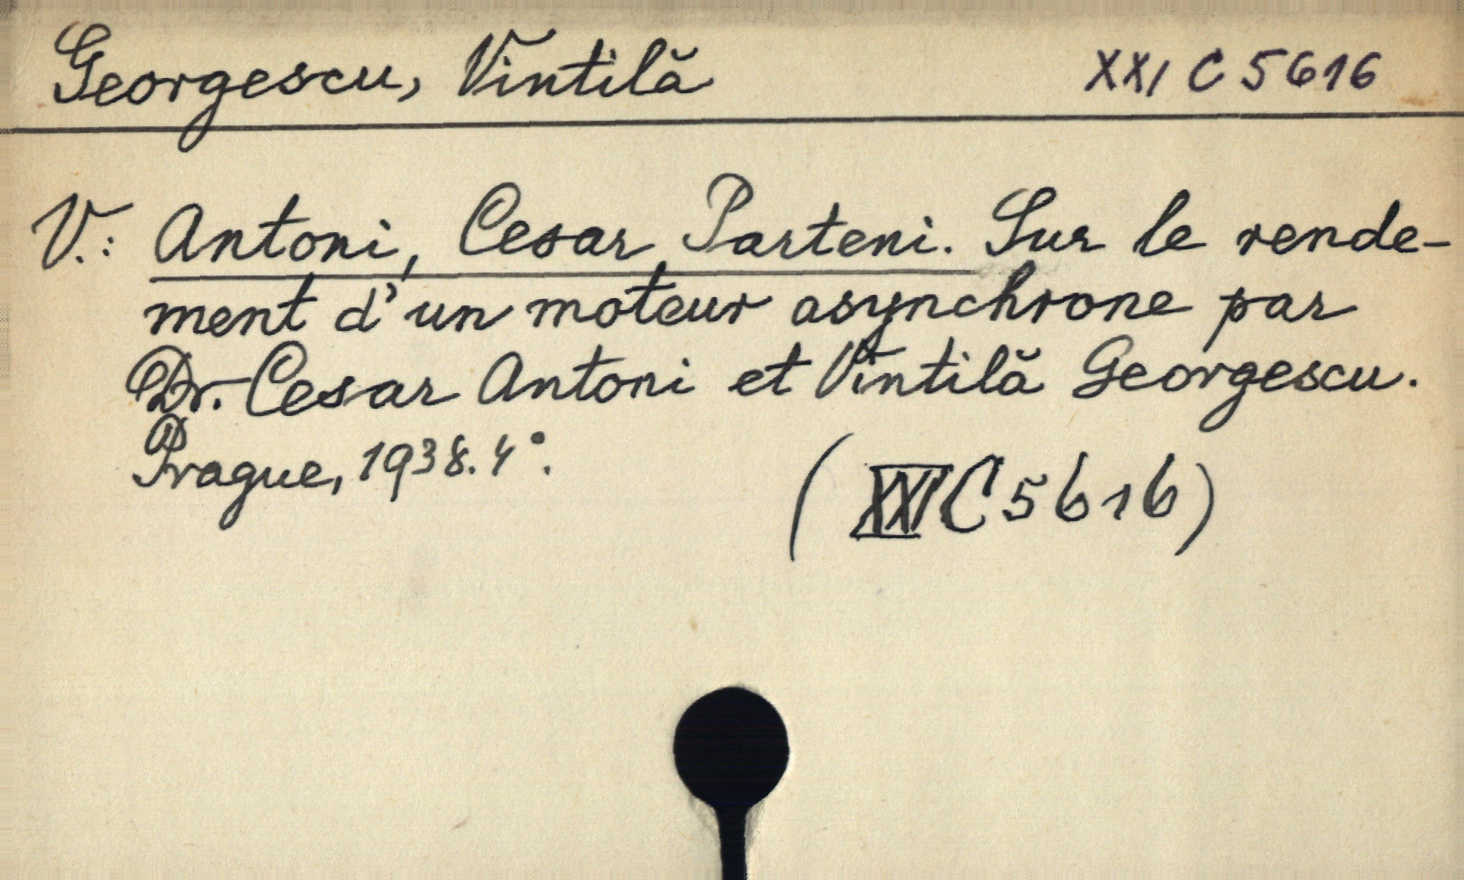 Georgescu, Vintilă XXI C 5616
V.: Antoni, Cesar Parteni. Sur le rende-
ment d'un moteur asynchrone par
Dr. Cesar Antoni et Vintilă Georgescu.
Prague, 1938. 4°.
(XXI C 5616)